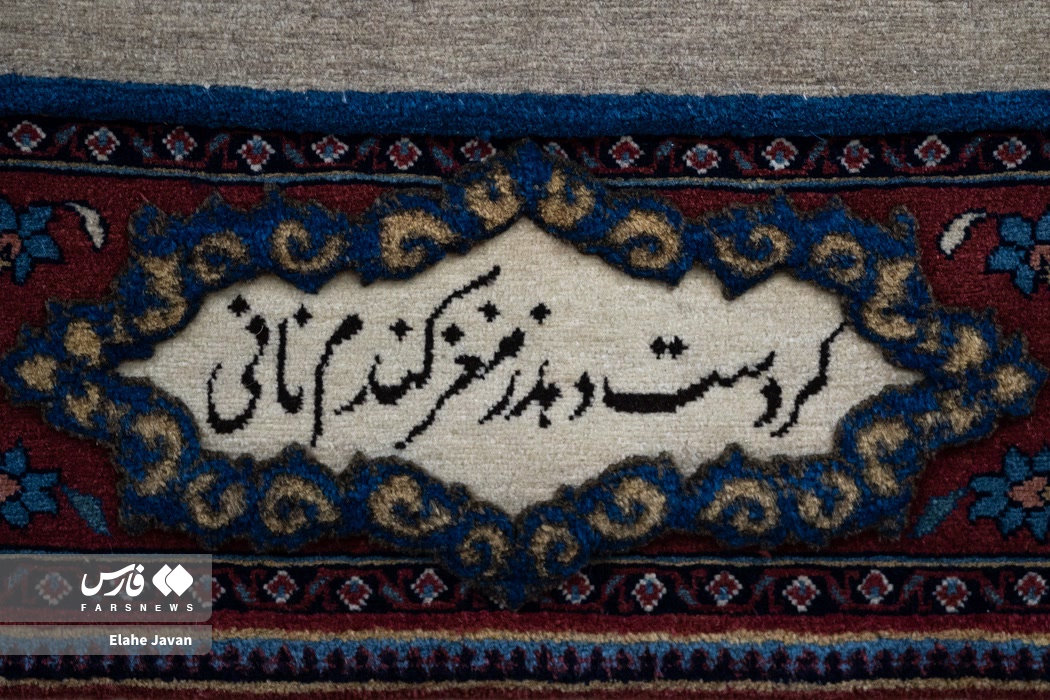 گر دست دهد ز مغز گندم نانی
فارس
FARSNEWS
Elahe Javan